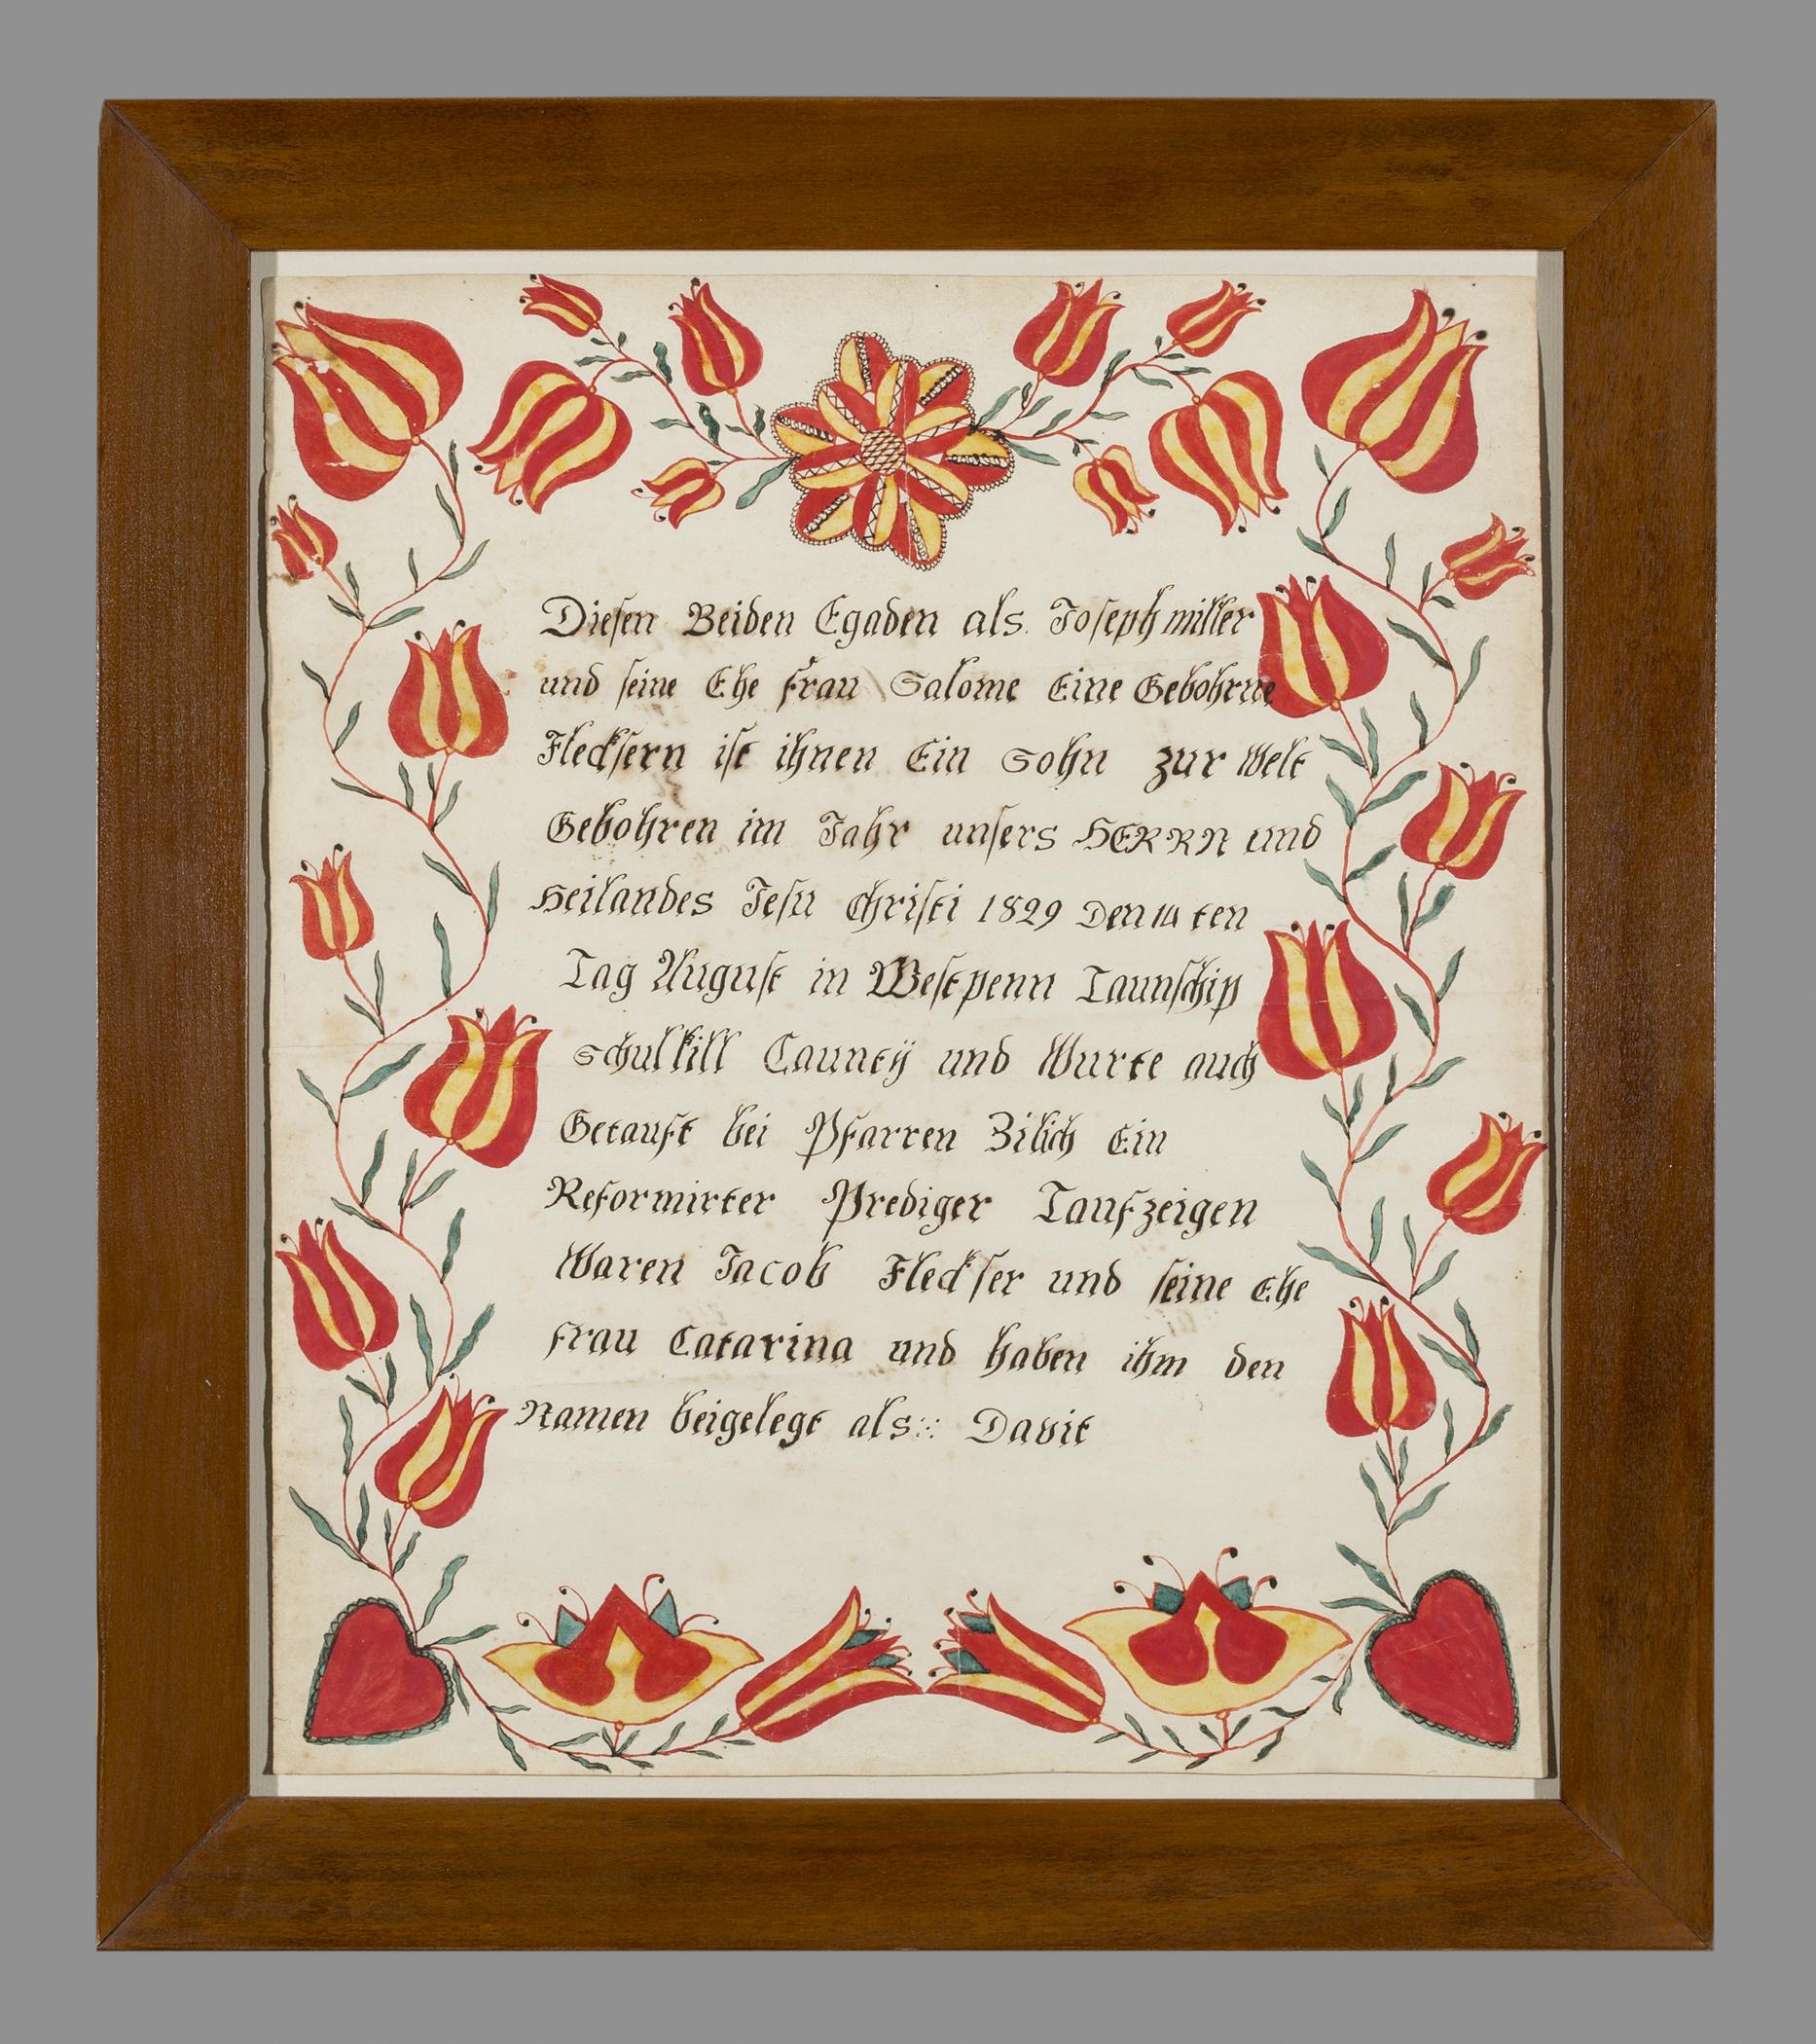 Dieſen Beiden Egaden als Joſeph miller
und ſeine Ehe frau Salome Eine Gebohrne
Fleckſern iſt ihnen Ein Sohn zur Welt
Gebohren im Jahr unſers HERRN und
Heilandes Jeſu Chriſti 1829 Den 14 ten
Tag Auguſt in Weſtpenn Taunſchip
Schulkill Caunty und Wurte auch
Getauft bei Pfarren Zilich Ein
Reformirter Prediger Taufzeigen
Waren Jacob Fleckſer und ſeine Ehe
frau Catarina und haben ihm den
Namen beigelegt als:: Davit